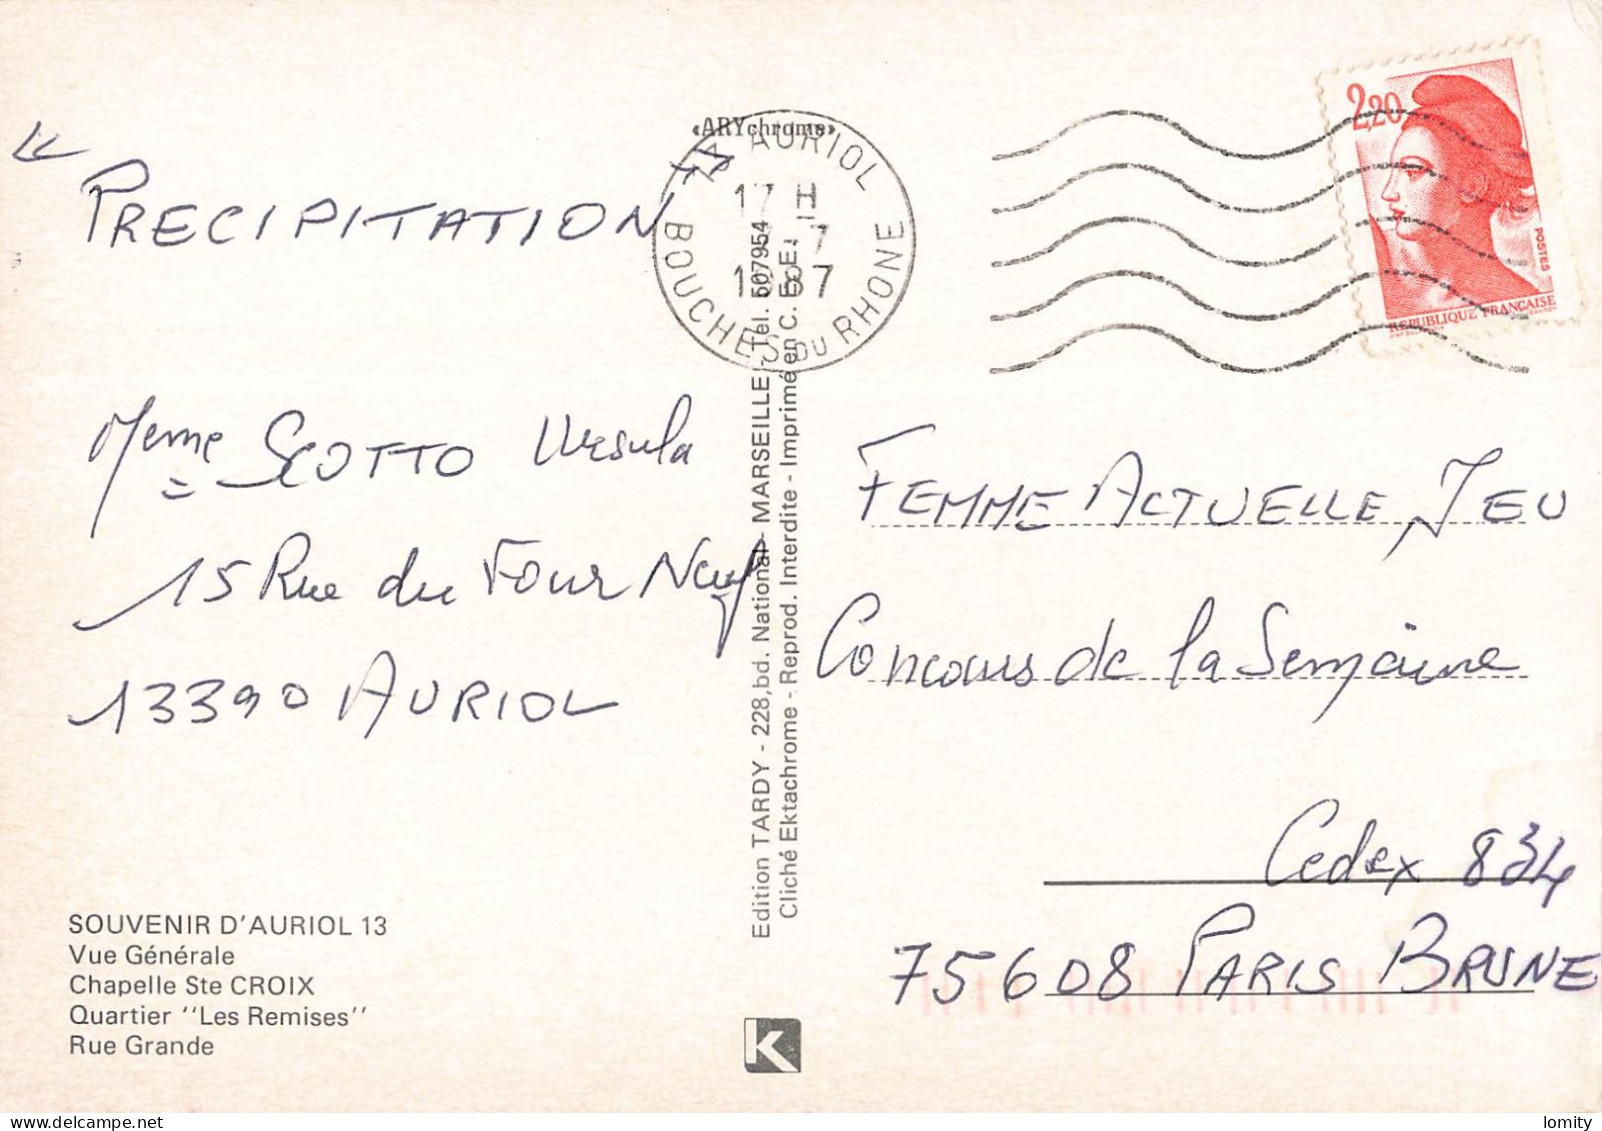 « PRECIPITATION »
Meme SCOTTO Ursula
15 Rue du Four Neuf
13390 AURIOL
SOUVENIR D'AURIOL 13
Vue Générale
Chapelle Ste CROIX
Quartier "Les Remises"
Rue Grande
«ARYchrome»
13 AURIOL
17 H
7
1987
BOUCHES DU RHONE
Edition TARDY - 228, bd. National - MARSEILLE - Tél. 507954
Cliché Ektachrome - Reprod. Interdite - Imprimé en C.E.E.
K
2,20
POSTES
REPUBLIQUE FRANÇAISE
FEMME ACTUELLE JEU
Concours de la Semaine
Cedex 834
75608 PARIS BRUNE
lomity